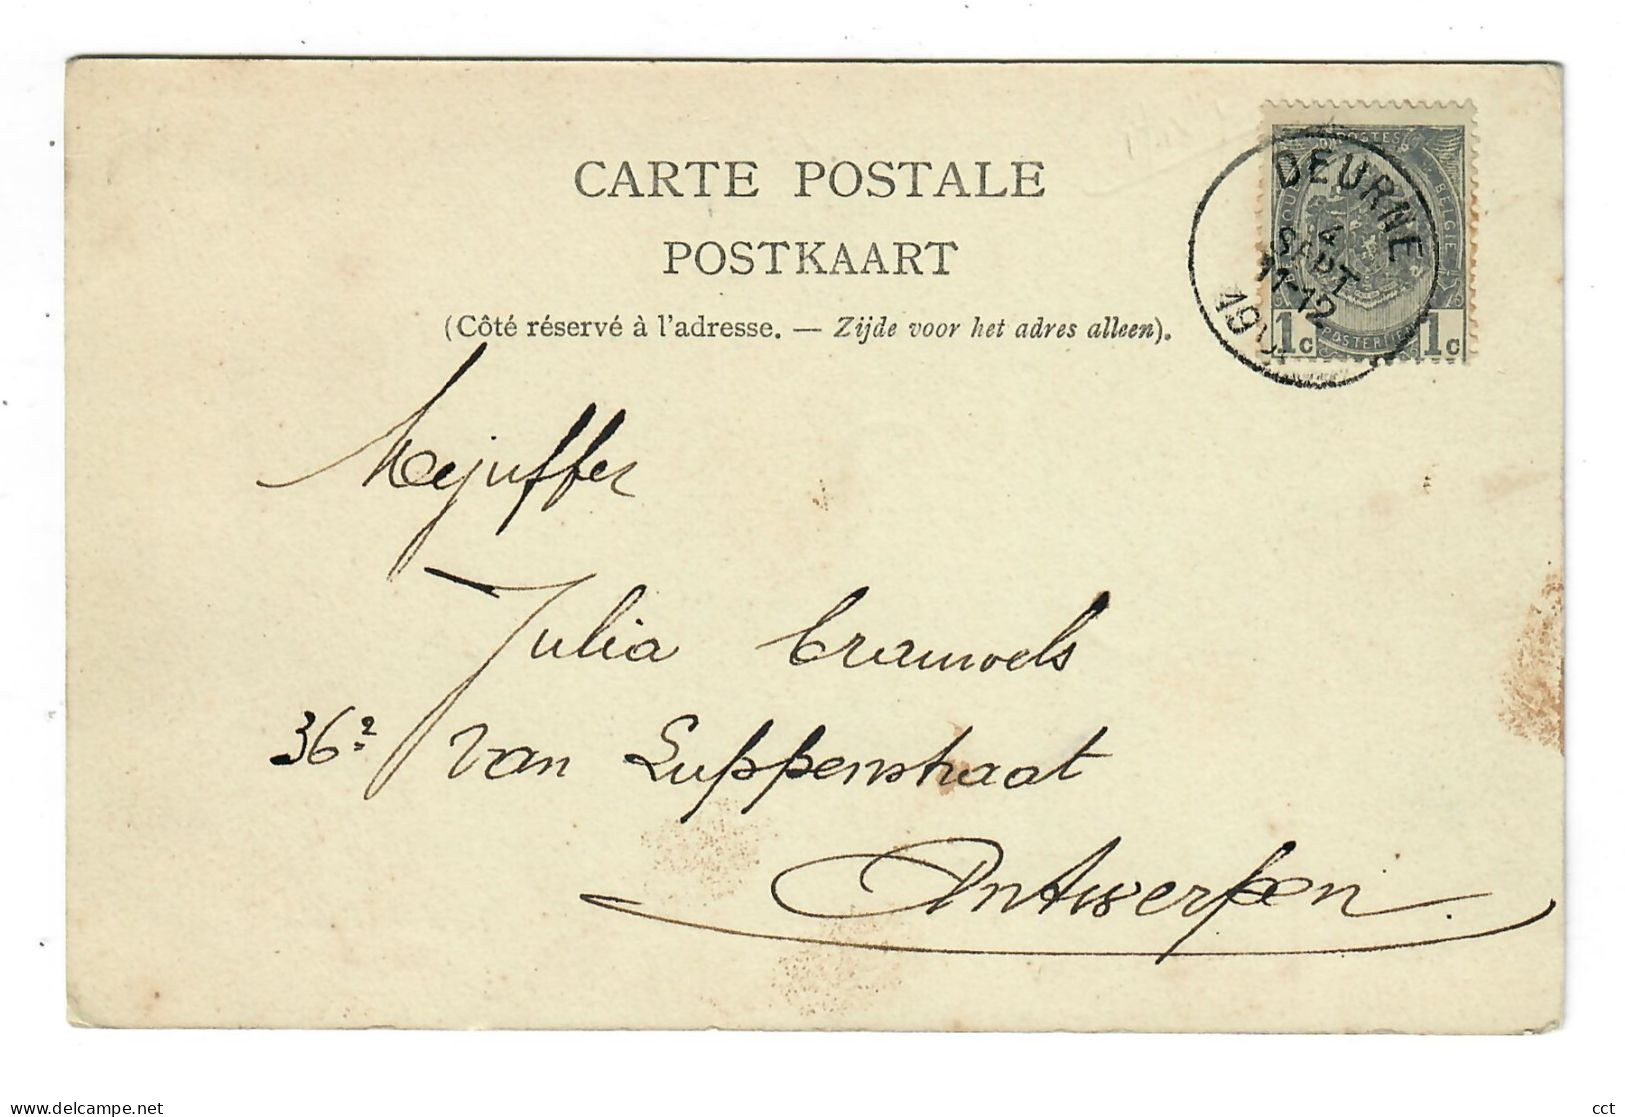 CARTE POSTALE
POSTKAART
(Côté réservé à l'adresse. — Zijde voor het adres alleen).
DEURNE
4
SEPT
11-12
POSTES
BELGIE
POSTERIJEN
1c 1c
Mejuffer
Julia Crauwels
36² Van Luppenstraat
Antwerpen.
delcampe.net
cct